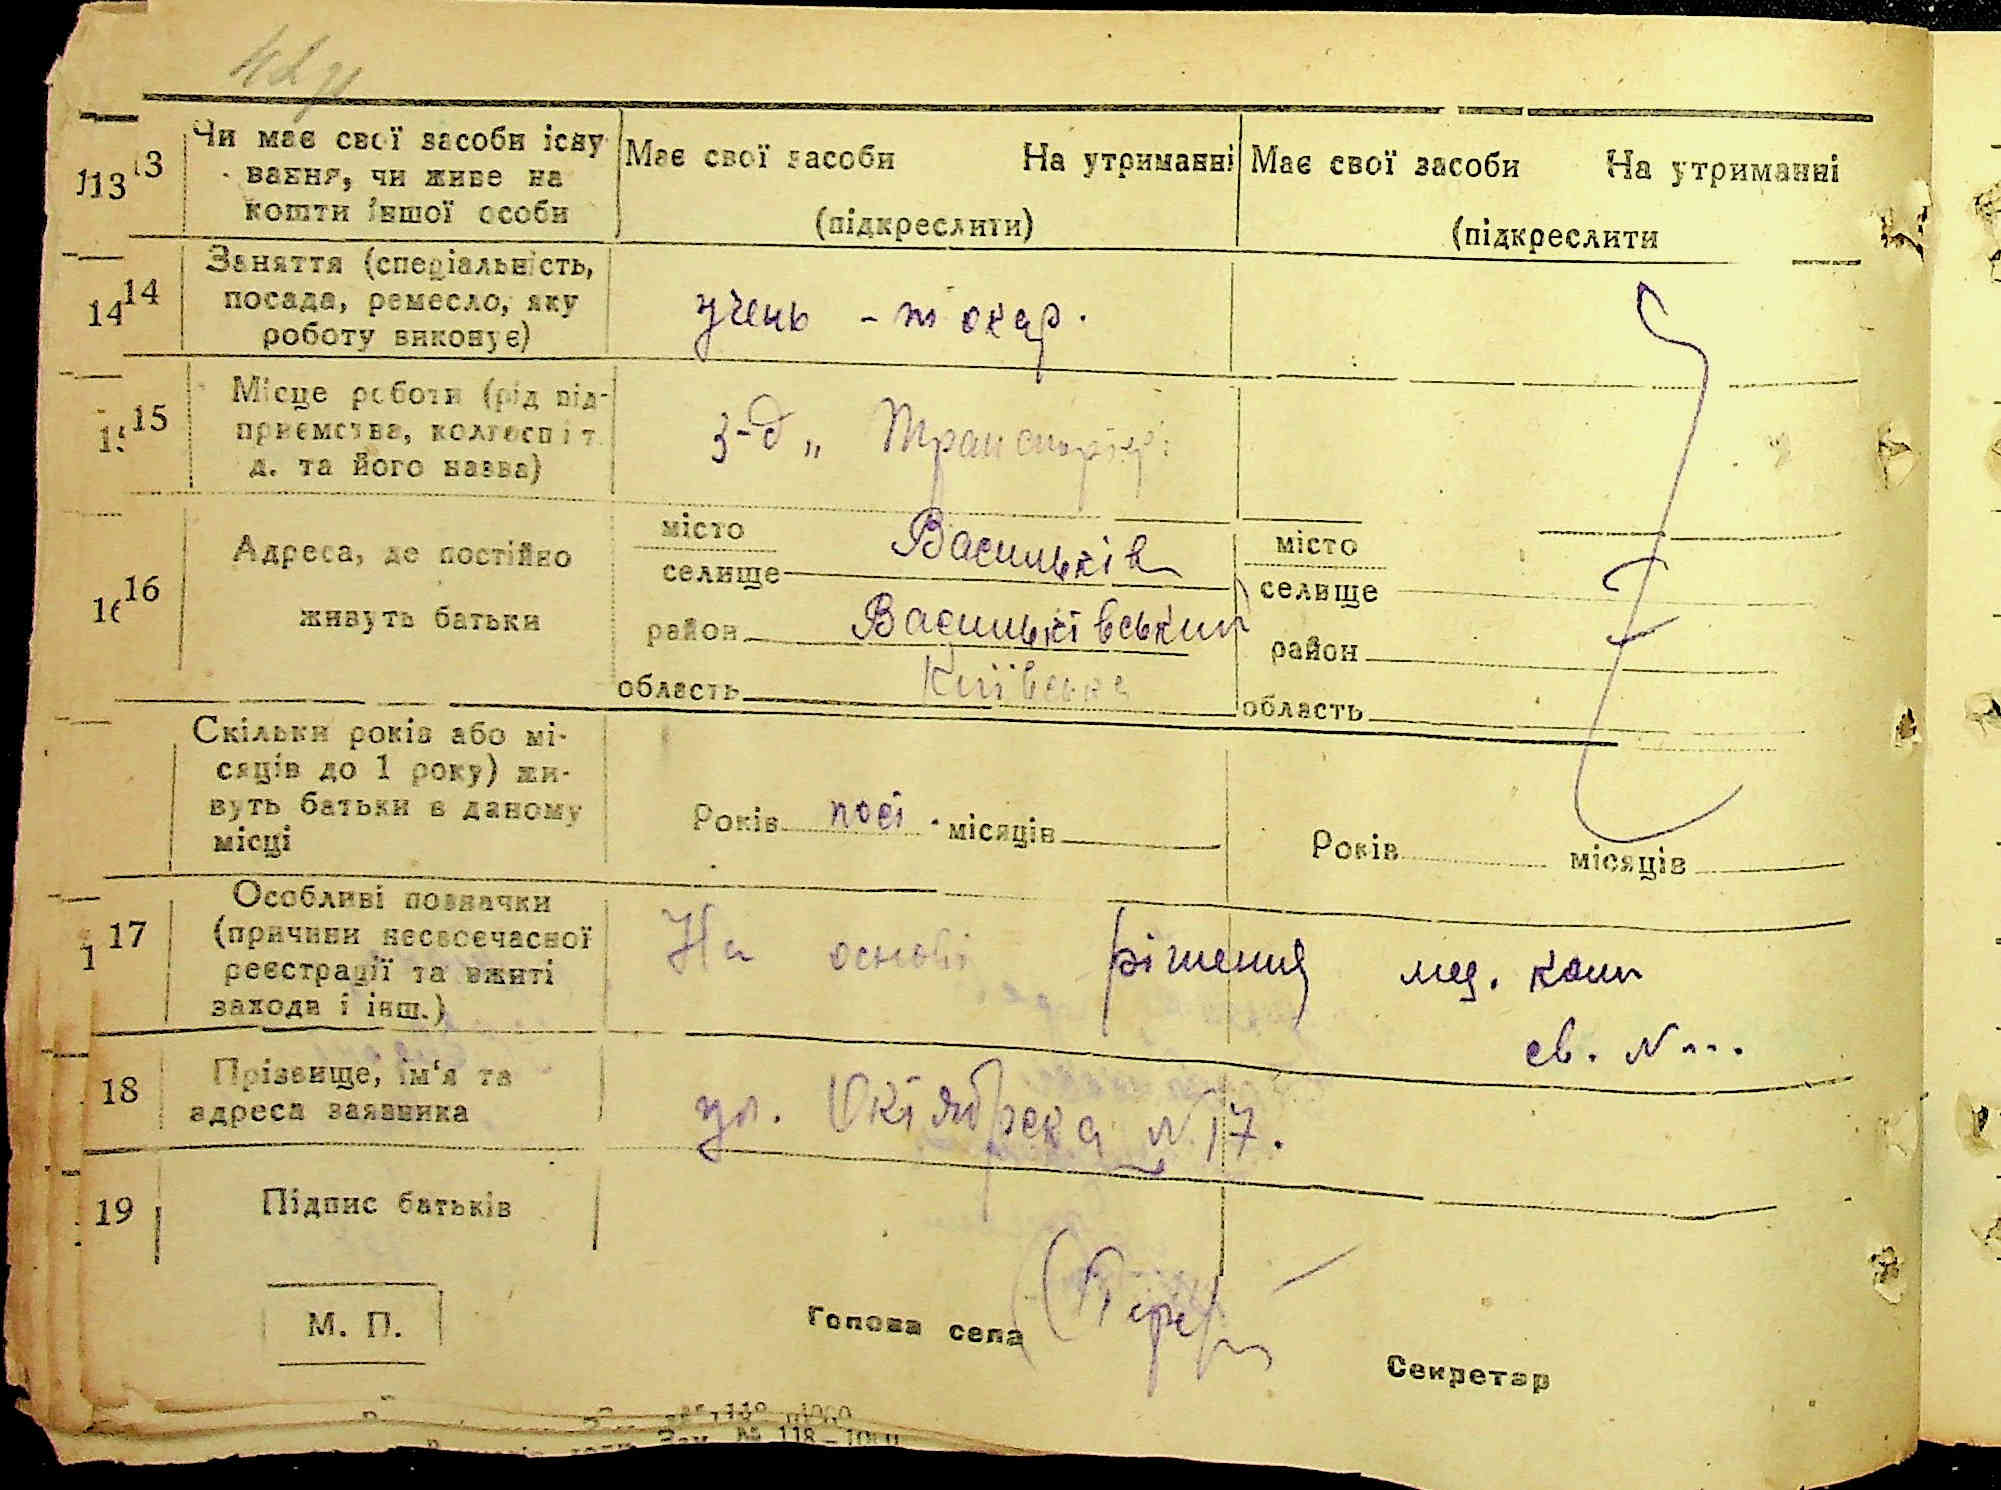 13 Чи має свої засоби існу
вання, чи живе на
кошти іншої особи
Має свої засоби На утриманні
(підкреслити)
Має свої засоби На утриманні
(підкреслити
14 Заняття (спеціальність,
посада, ремесло, яку
роботу виконує)
учень - токар.
15 Місце роботи (рід під-
приємства, колгосп і т.
д. та його назва)
з-д „
16 Адреса, де постійно
живуть батьки
місто
селище
Васильків
район Васильківський
область Київська
місто
селище
район
область
Скільки років або мі-
сяців до 1 року) жи-
вуть батьки в даному
місці
Років пості. місяців
Років місяців
17 Особливі позначки
(причини несвоєчасної
реєстрації та вжиті
заходи і інш.)
На основі рішення мед. комі
св. N...
18 Прізвище, ім'я та
адреса заявника
ул. N 17.
19 Підпис батьків
М. П.
Голова села
Секретар